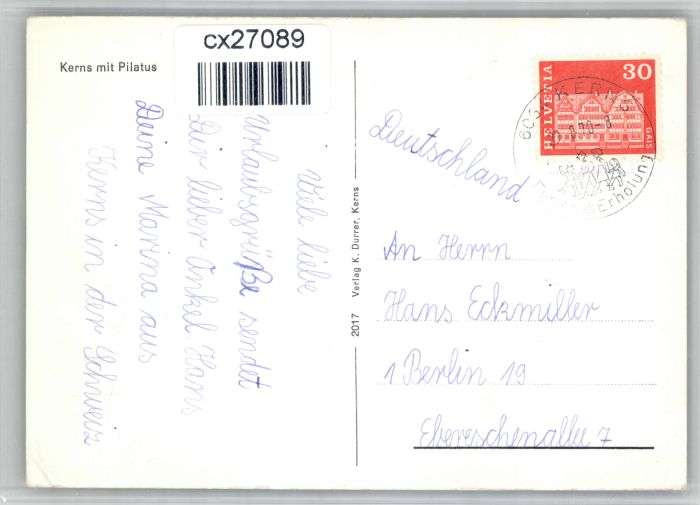 cx27089
Kerns mit Pilatus
Viele liebe
Urlaubsgrüße sendet
Dir lieber Onkel Hans
Deine Marina aus
Kerns in der Schweiz
2017 Verlag K. Durrer, Kerns
HELVETIA
30
GAIS
KERNS
Erholung
Deutschland
An Herrn
Hans Eckmiller
1 Berlin 19
Ebereschenallee 7